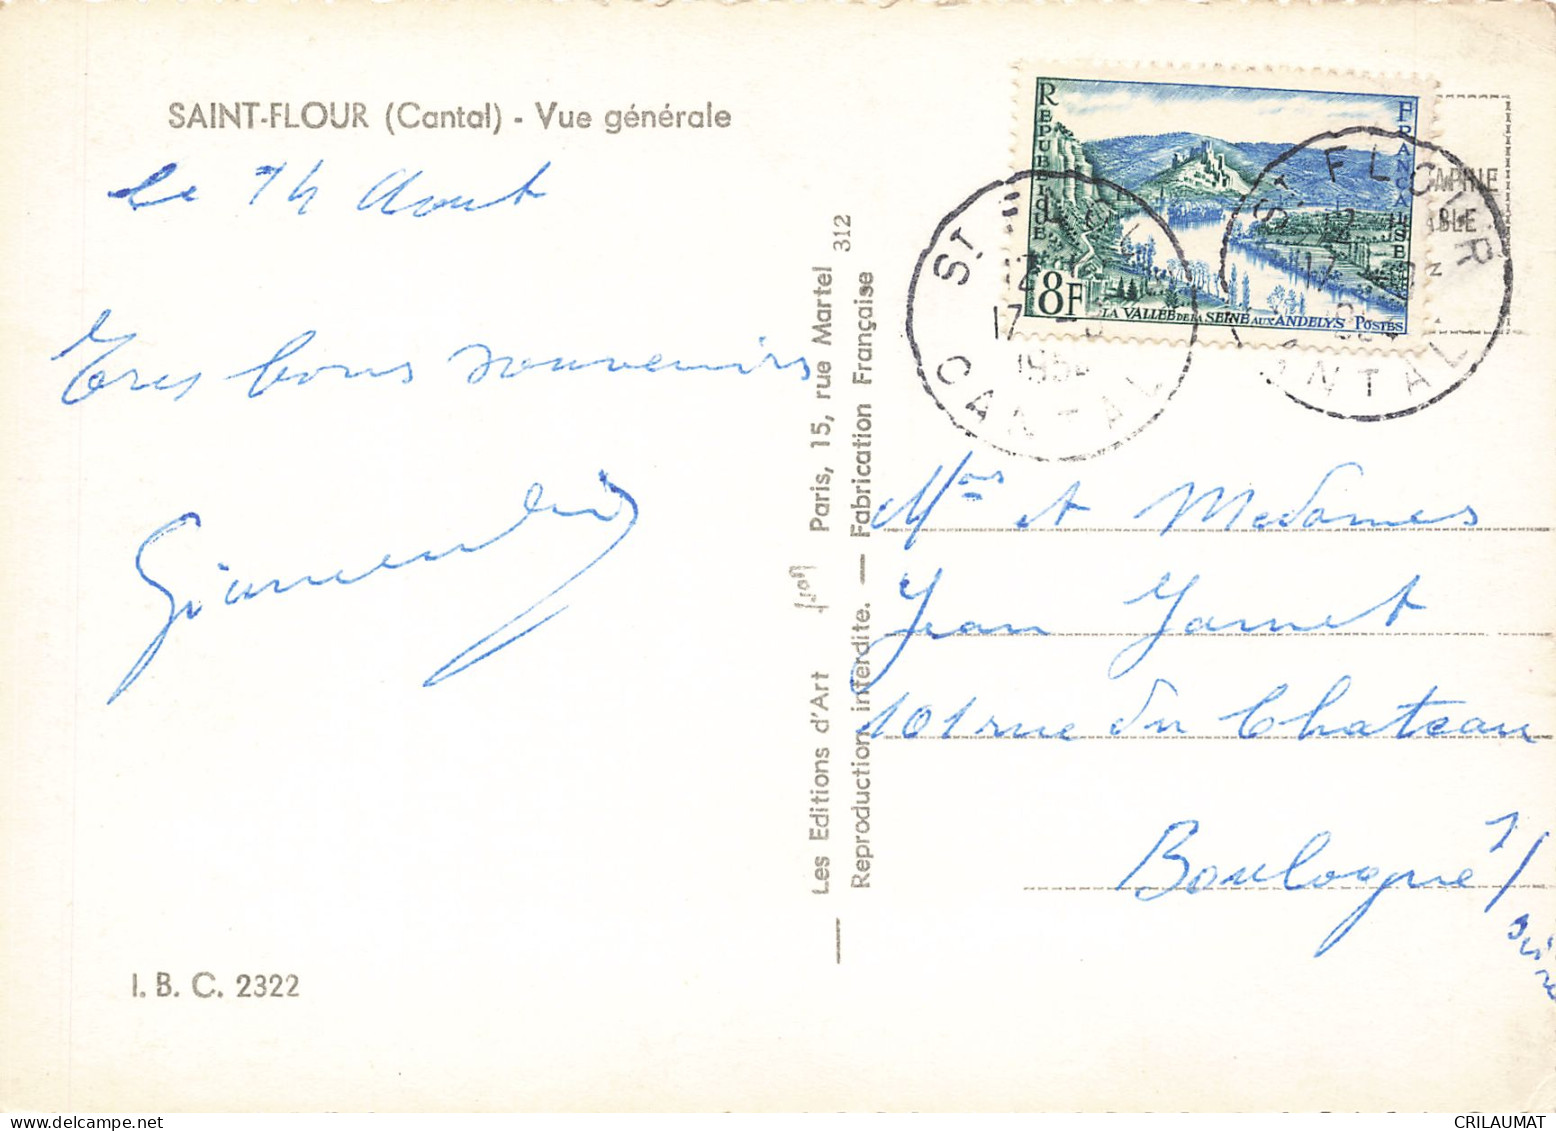 SAINT-FLOUR (Cantal) - Vue générale
le 14 Aout
Tres bons souvenirs
I. B. C. 2322
Les Editions d'Art Paris, 15, rue Martel 312
Reproduction interdite. — Fabrication Française
REPUBLIQUE FRANÇAISE
8F
LA VALLEE DE LA SEINE AUX ANDELYS POSTES
ST FLOUR
12
17
1954
CANTAL
ST FLOUR
12
17
CANTAL
Mrs et Mesdames
Jean Jamet
101 rue du Chateau
Boulogne s/
Seine
CRILAUMAT